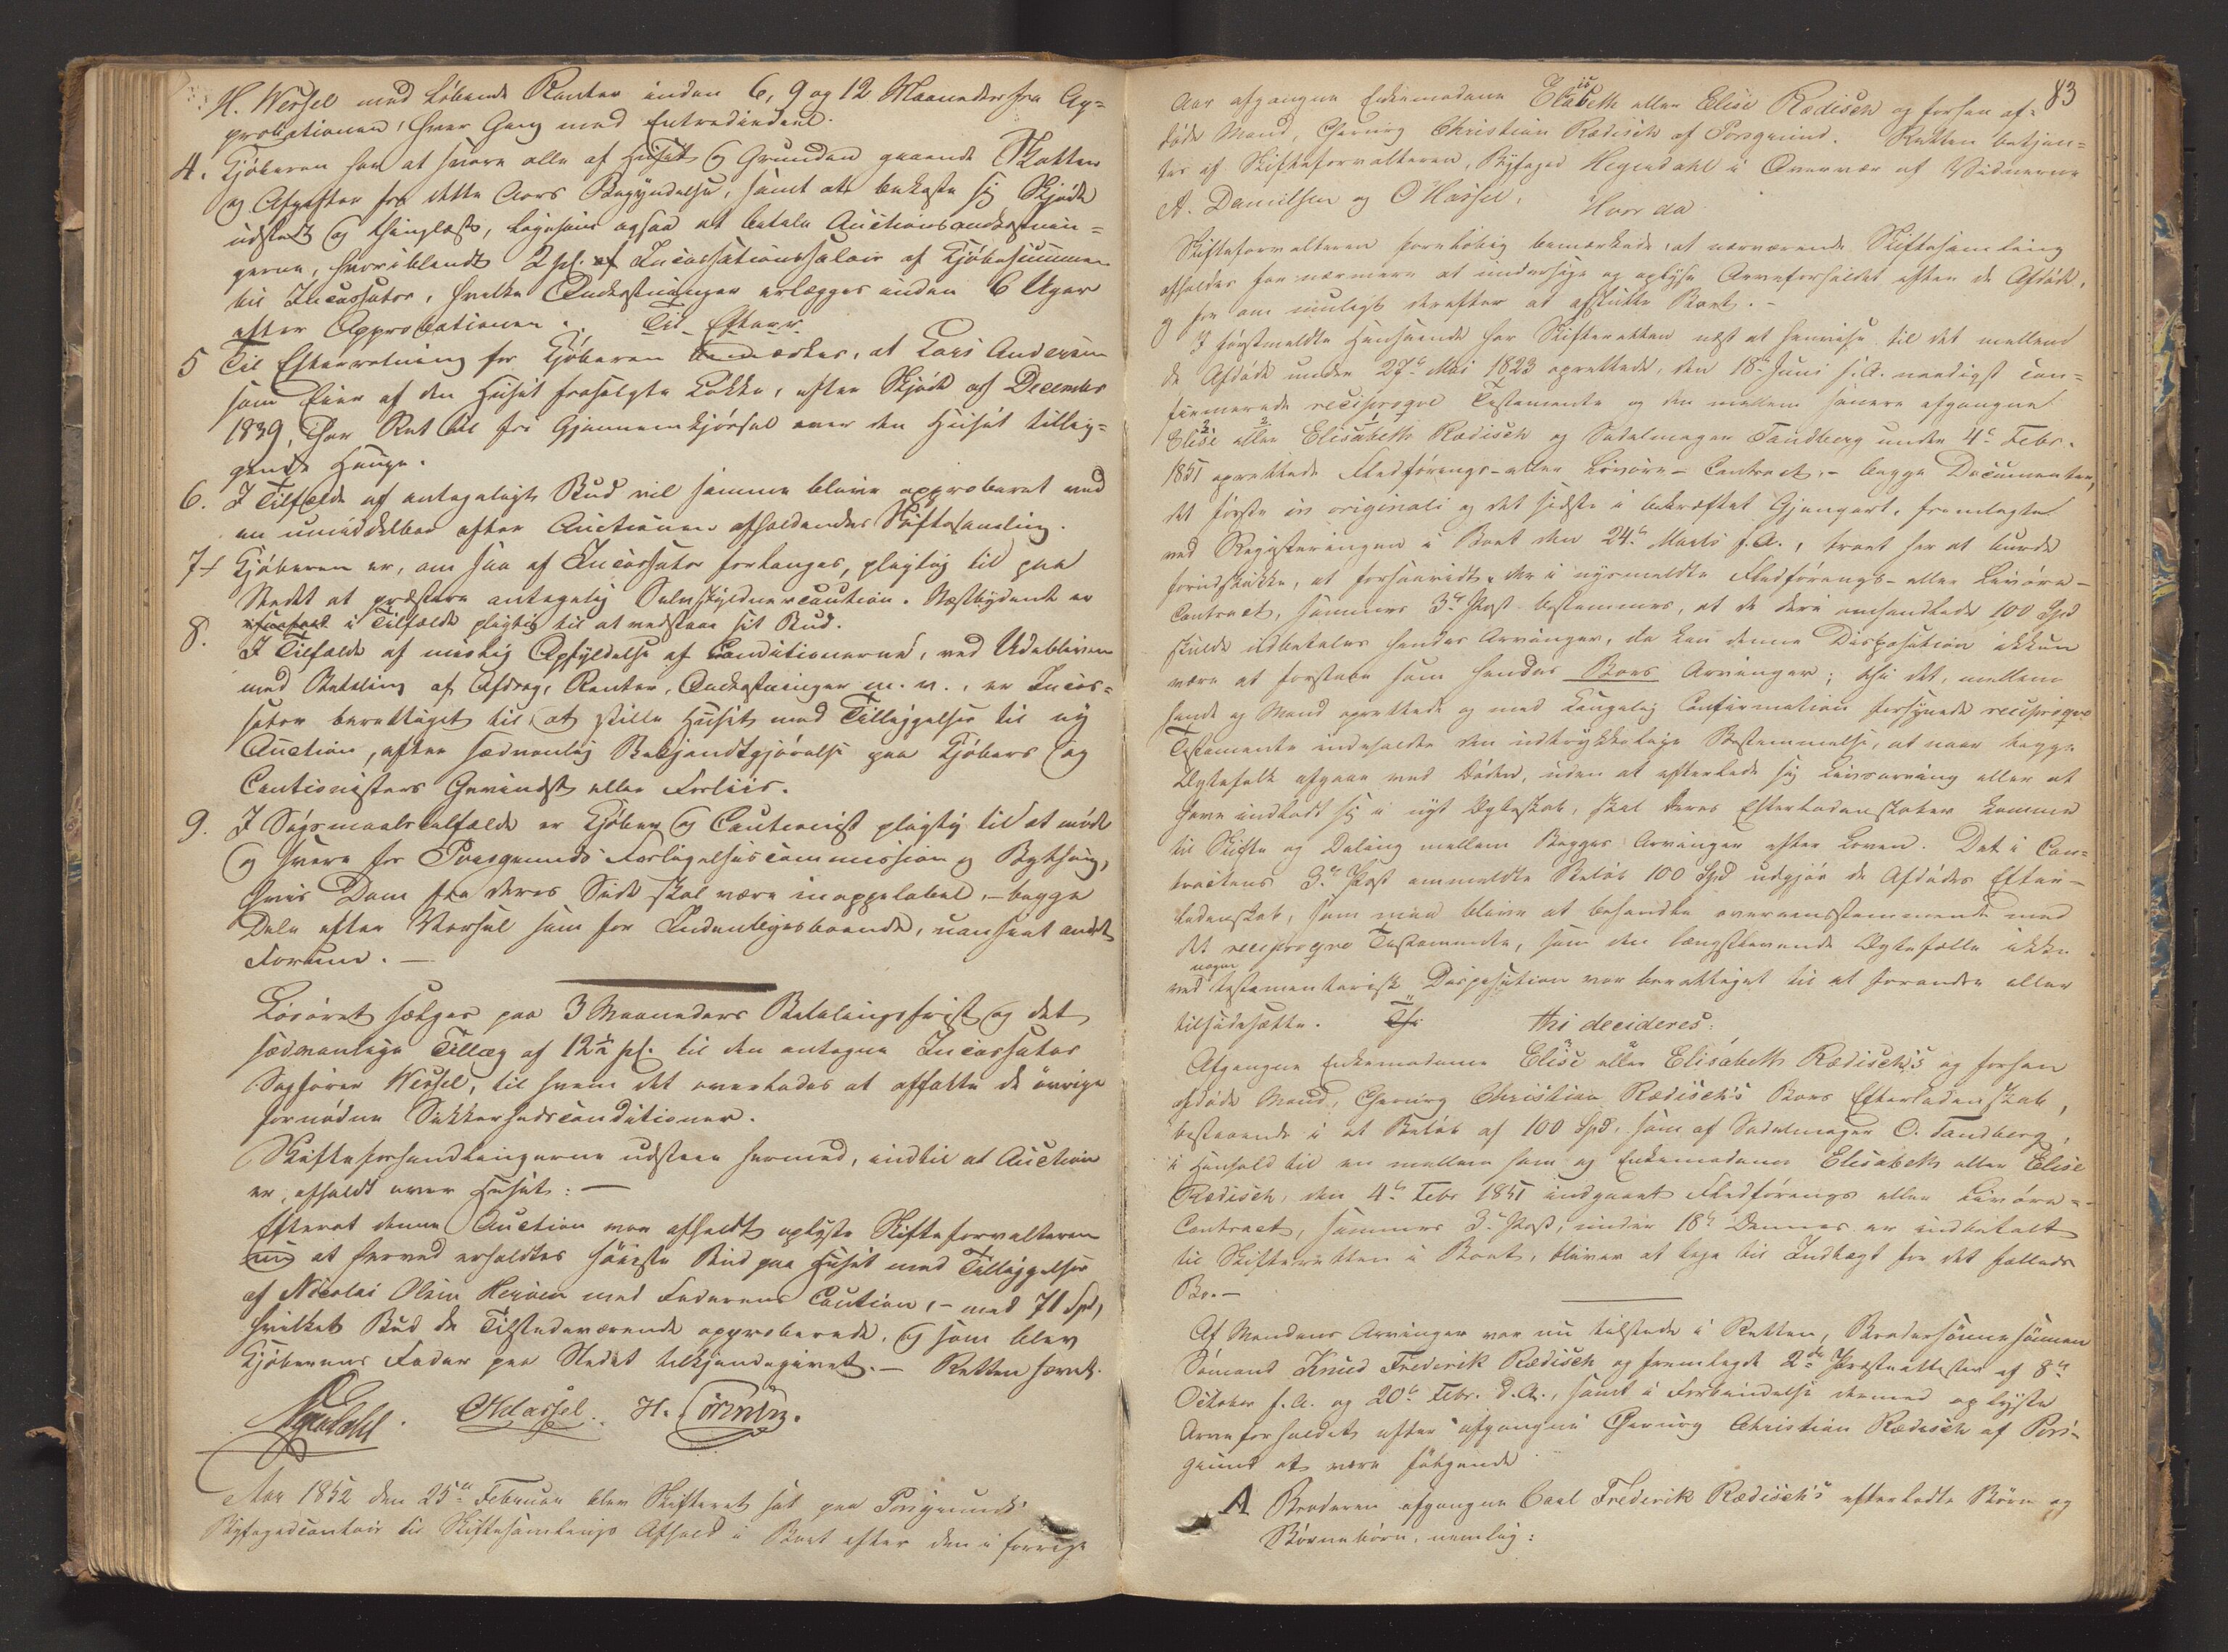 H. Wessel med løbende Renter inden 6, 9 og 12 Maaneder fra Ap=
probationen, hver Gang med Entrediedeel.
4. Kjøberen har at svare alle af Huset og Grunden gaaende Skatter
og Afgifter fra dette Aars Begyndelse, samt at bekoste sig Skjøde
udstedt og thinglæst, ligesom ogsaa at betale Auctionsomkostnin=
gerne, hvoriblandt 2 pC. af Incassationssalair af Kjøbesummen
til Incassator, hvilke Omkostninger erlægges inden 6 Uger
efter Approbationen. Til Efterr
5 Til Efterretning for Kjøberen bemærkes, at Lars Andersen
som Eier af den Huset frasolgte Løkke, efter Skjøde af December
1839, har Ret til fri Gjennemkjørsel over den Huset tillig=
gende Hauge.
6. I Tilfælde af antageligt Bud vil samme blive approberet ved
en umiddelbar efter Auctionen afholdendes Skiftesamling.
7 Kjøberen er, om saa af Incassator forlanges, pligtig til paa
Stedet at præstere antagelig Selvskyldnercaution. Næstbydende er
i Tilfælde pligtig til at vedstaae sit Bud.
8. I Tilfælde af mislig Opfyldelse af Conditionerne, ved Udebliven
med Betaling af Afdrag, Renter, Omkostninger m. v., er Incas=
sator berettiget til at stille Huset med Tilliggelser til ny
Auction, efter sædvanlig Bekjendtgjørelse paa Kjøbers og
Cautionisters Gevindst eller Forliis.
9. I Søgsmaalstilfælde er Kjøber og Cautionist pligtig til at møde
og svare for Porsgrunds Forligelsescommission og Bything,
hvis Dom fra deres Side skal være inappelabel, – begge
Dele efter Varsel som for Indenbyesboende, uanseet andet
Forum. –
Løsøret sælges paa 3 Maaneders Betalingsfrist og det
sædvanlige Tillæg af 12½ pC. til den antagne Incassator
Sagfører Wessel, til hvem det overlades at affatte de øvrige
fornødne Sikkerhedsconditioner.
Skifteforhandlingerne udstaae hermed, indtil at Auction
er afholdt over Huset: –
Efterat denne Auction var afholdt oplyste Skifteforvalteren
at herved erholdtes høieste Bud paa Huset med Tilliggelser
af Nicolai Olsen Herøen med Faderens Caution, – med 71 Spd,
hvilket Bud de Tilstedeværende approberede, og som blev
Kjøberens Fader paa Stedet tilkjendegivet. – Retten hævet.
Hegerdahl. O Hassel. H.
Aar 1852 den 25de Februar blev Skifteret sat paa Porsgrunds
Byfogedcontoir til Skiftesamlings Afhold i Boet efter den i forrige
83
Aar afgangne Enkemadame Elisabeth eller Elise Rædisch og forhen af=
døde Mand, Chirurg Christian Rædisch af Porsgrund. Retten betjen=
tes af Skifteforvalteren, Byfoged Hegerdahl i Overvær af Vidnerne
A. Danielsen og O Hassel. Hvor da
Skifteforvalteren foreløbig bemærkede, at nærværende Skiftesamling
afholdes for nærmere at undersøge og oplyse Arveforholdet efter de Afdøde,
og for om muligt derefter at afslutte Boet. –
I førstmeldte Henseende har Skifteretten næst at henvise til det mellem
de Afdøde under 27de Mai 1823 oprettede, den 18de Juni s. A. naadigst con=
firmerede reciproqve Testamente og den mellem senere afgangne
Elise eller Elisabeth Rædisch og Sadelmager Tandberg under 4de Febr.
1851 oprettede Fledførings- eller Livøre-Contract, – begge Documenter,
det første in originali og det sidste i bekræftet Gjenpart, fremlagte
ved Registeringen i Boet den 24de Marts f. A., troet her at burde
forudskikke, at forsaavidt der i nysmeldte Fledførings- eller Livøre-
Contract, sammes 3die Post bestemmes, at de deri omhandlede 100 Spd
skulde udbetales hendes Arvinger, da kan denne Disposition ikkun
være at forstaae som hendes Boes Arvinger; thi det, mellem
hende og Mand oprettede og med Kongelig Confirmation forsynede reciproqve
Testamente indeholder den udtrykkelige Bestemmelse, at naar begge
Ægtefolk afgaae ved Døden, uden at efterlade sig Livsarving eller at
have indladt sig i nyt Ægteskab, skal deres Efterladenskaber komme
til Skifte og Deling mellem Begges Arvinger efter Loven. Det i Con=
tractens 3die Post ommeldte Beløb 100 Spd udgjør de Afdødes Efter-
ladenskab, som maa blive at behandle overeensstemmende med
det reciproqve Testamente, som den længstlevende Ægtefælle ikke
ved nogen testamentarisk Disposition var berettiget til at forandre eller
tilsidesætte. Thi thi decideres:
Afgangne Enkemadame Elise eller Elisabeth Rædisch's og forhen
afdøde Mand, Chirurg Christian Rædisch's Boes Efterladenskab,
bestaaende i et Beløb af 100 Spd, som af Sadelmager O. Tandberg,
i Henhold til en mellem ham og Enkemadame Elisabeth eller Elise
Rædisch, den 4de Febr 1851 indgaaet Fledførings eller Livøre=
Contract, sammes 3die Post, under 18de Dennes er indbetalt
til Skifteretten i Boet, bliver at tage til Indtægt for det fælleds
Bo. –
Af Mandens Arvinger var nu tilstede i Retten, Brodersønnesønnen
Sømand Knud Frederik Rædisch og fremlagde 2de Præsteattester af 8de
October f. A. og 20de Febr. d. A., samt i Forbindelse dermed oplyste
Arveforholdet efter afgangne Chirurg Christian Rædisch af Pors-
grund at være følgende
A Broderen afgangne Carl Frederik Rædisch's efterladte Børn og
Børnebørn, nemlig: